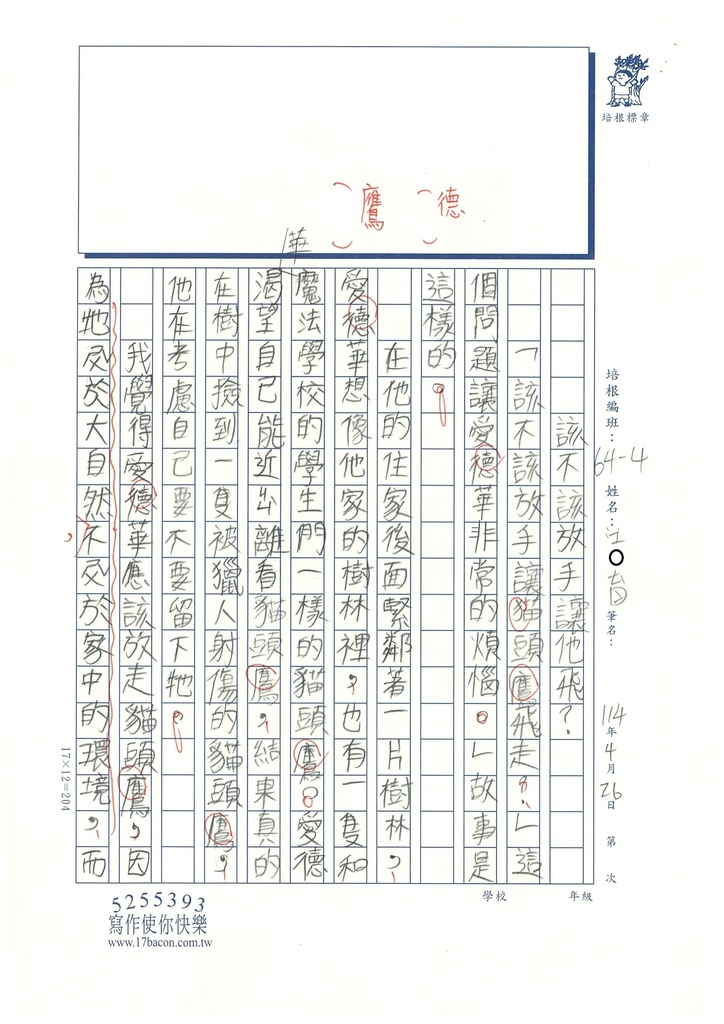 培根標章
培根編班：64-4
姓名：
筆名：
114年4月26日 第 次
學校 年級
德
鷹
該不該放手讓他飛？
「該不該放手讓貓頭鷹飛走？」這
個問題讓愛德華非常的煩惱。」故事是
這樣的。
在他的住家後面緊鄰著一片樹林，
愛德華想像他家的樹林裡，也有一隻和
魔法學校的學生們一樣的貓頭鷹。愛德
華
渴望自己能近距離看貓頭鷹，結果真的
在樹中撿到一隻被獵人射傷的貓頭鷹，
他在考慮自己要不要留下牠。
我覺得愛德華應該放走貓頭鷹，因
為牠處於大自然，不處於家中的環境，而
17×12=204
5255393
寫作使你快樂
www.17bacon.com.tw